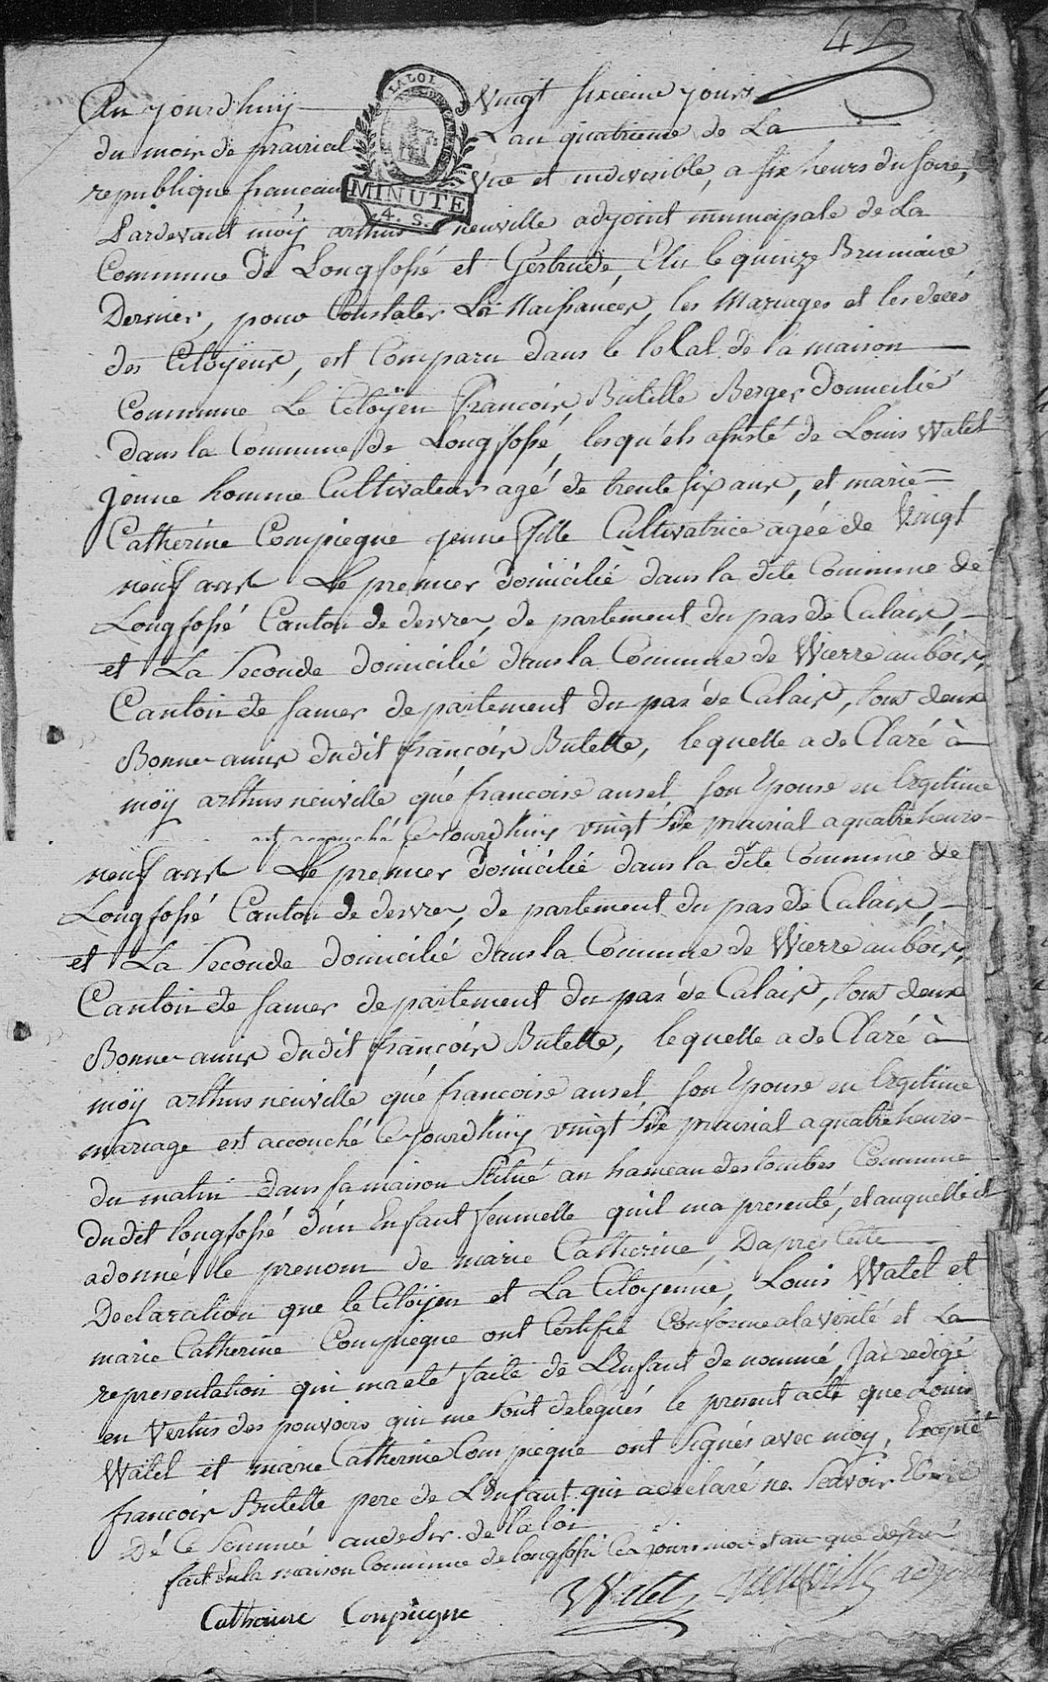 4
Au jourd'huÿ vingt sixieme jours
LA LOI
du mois de prairial L'an quatrieme de La
republique francaise Vne et indivisible, a six heurs du soire,
MINUTE
4. S.
Pardevant moÿ arthus neuville adjoint municipale de La
Commune de Longfossé et Gertrude, Elu le quinze Brumaire
Dernier, pour Constater Les Naissances, les Mariages et les decès
des Citoÿens, est Comparu dans le lolal de la maison
Commune Le Citoÿen francois Butelle Berger Domicilié
dans la Commune de Longfossé, lesqu'els assisté de Louis Watel
jeune homme Cultivateur agé de trente six ans, et marie
Catherine Compiegne jeune fille Cultivatrice agée de Vingt
neuf ans Le premier domicilié dans la dite Commune de
Longfossé Canton de desvres, de partement du pas de Calais,
et La Seconde domicilié dans la Commune de Wierre au bois,
Canton de samer de partement du pas de Calais, tous deux
Bonne amis dudit francois Butelle, lequelle a de Claré à
moÿ arthus neuville que francoise ansel son Epouse en legitime
est accouché ce jourdhuy vingt six prairial a quatre heurs
neuf ans Le premier domicilié dans la dite Commune de
Longfossé Canton de desvres, de partement du pas de Calais,
et La Seconde domicilié dans la Commune de Wierre au bois,
Canton de samer de partement du pas de Calais, tous deux
Bonne amis dudit francois Butelle, lequelle a de Claré à
moÿ arthus neuville que francoise ansel son Epouse en legitime
mariage est accouché ce jourdhuy vingt six prairial a quatre heurs
du matin dans sa maison Situé au hameau des tombes Commune
dudit longfossé d'un Enfant femmelle qu'il ma presenté, et auquelle il
adonné le prenom de marie Catherine, Daprès Cette
Declaration que le Citoÿen et La Citoyenne, Louis Watel et
marie Catherine Compiegne ont Certifié Conforme ala verité et La
representation qui maeté faite de L'Enfant de nommé, J'ai redigé
en Vertus des pouvoirs qui me sont delegués le present acte que Louis
Watel et marie Catherine Compiegne ont Signés avec moy, Excepté
francois Butelle pere de L'Enfant qui adeclaré ne Scavoir Ecrire
De Ce Sommé audesir de la loi
fait En la maison Commune de longfossé les jours mois et an que dessus
Watel neuville adjoint
Catherine Compiegne